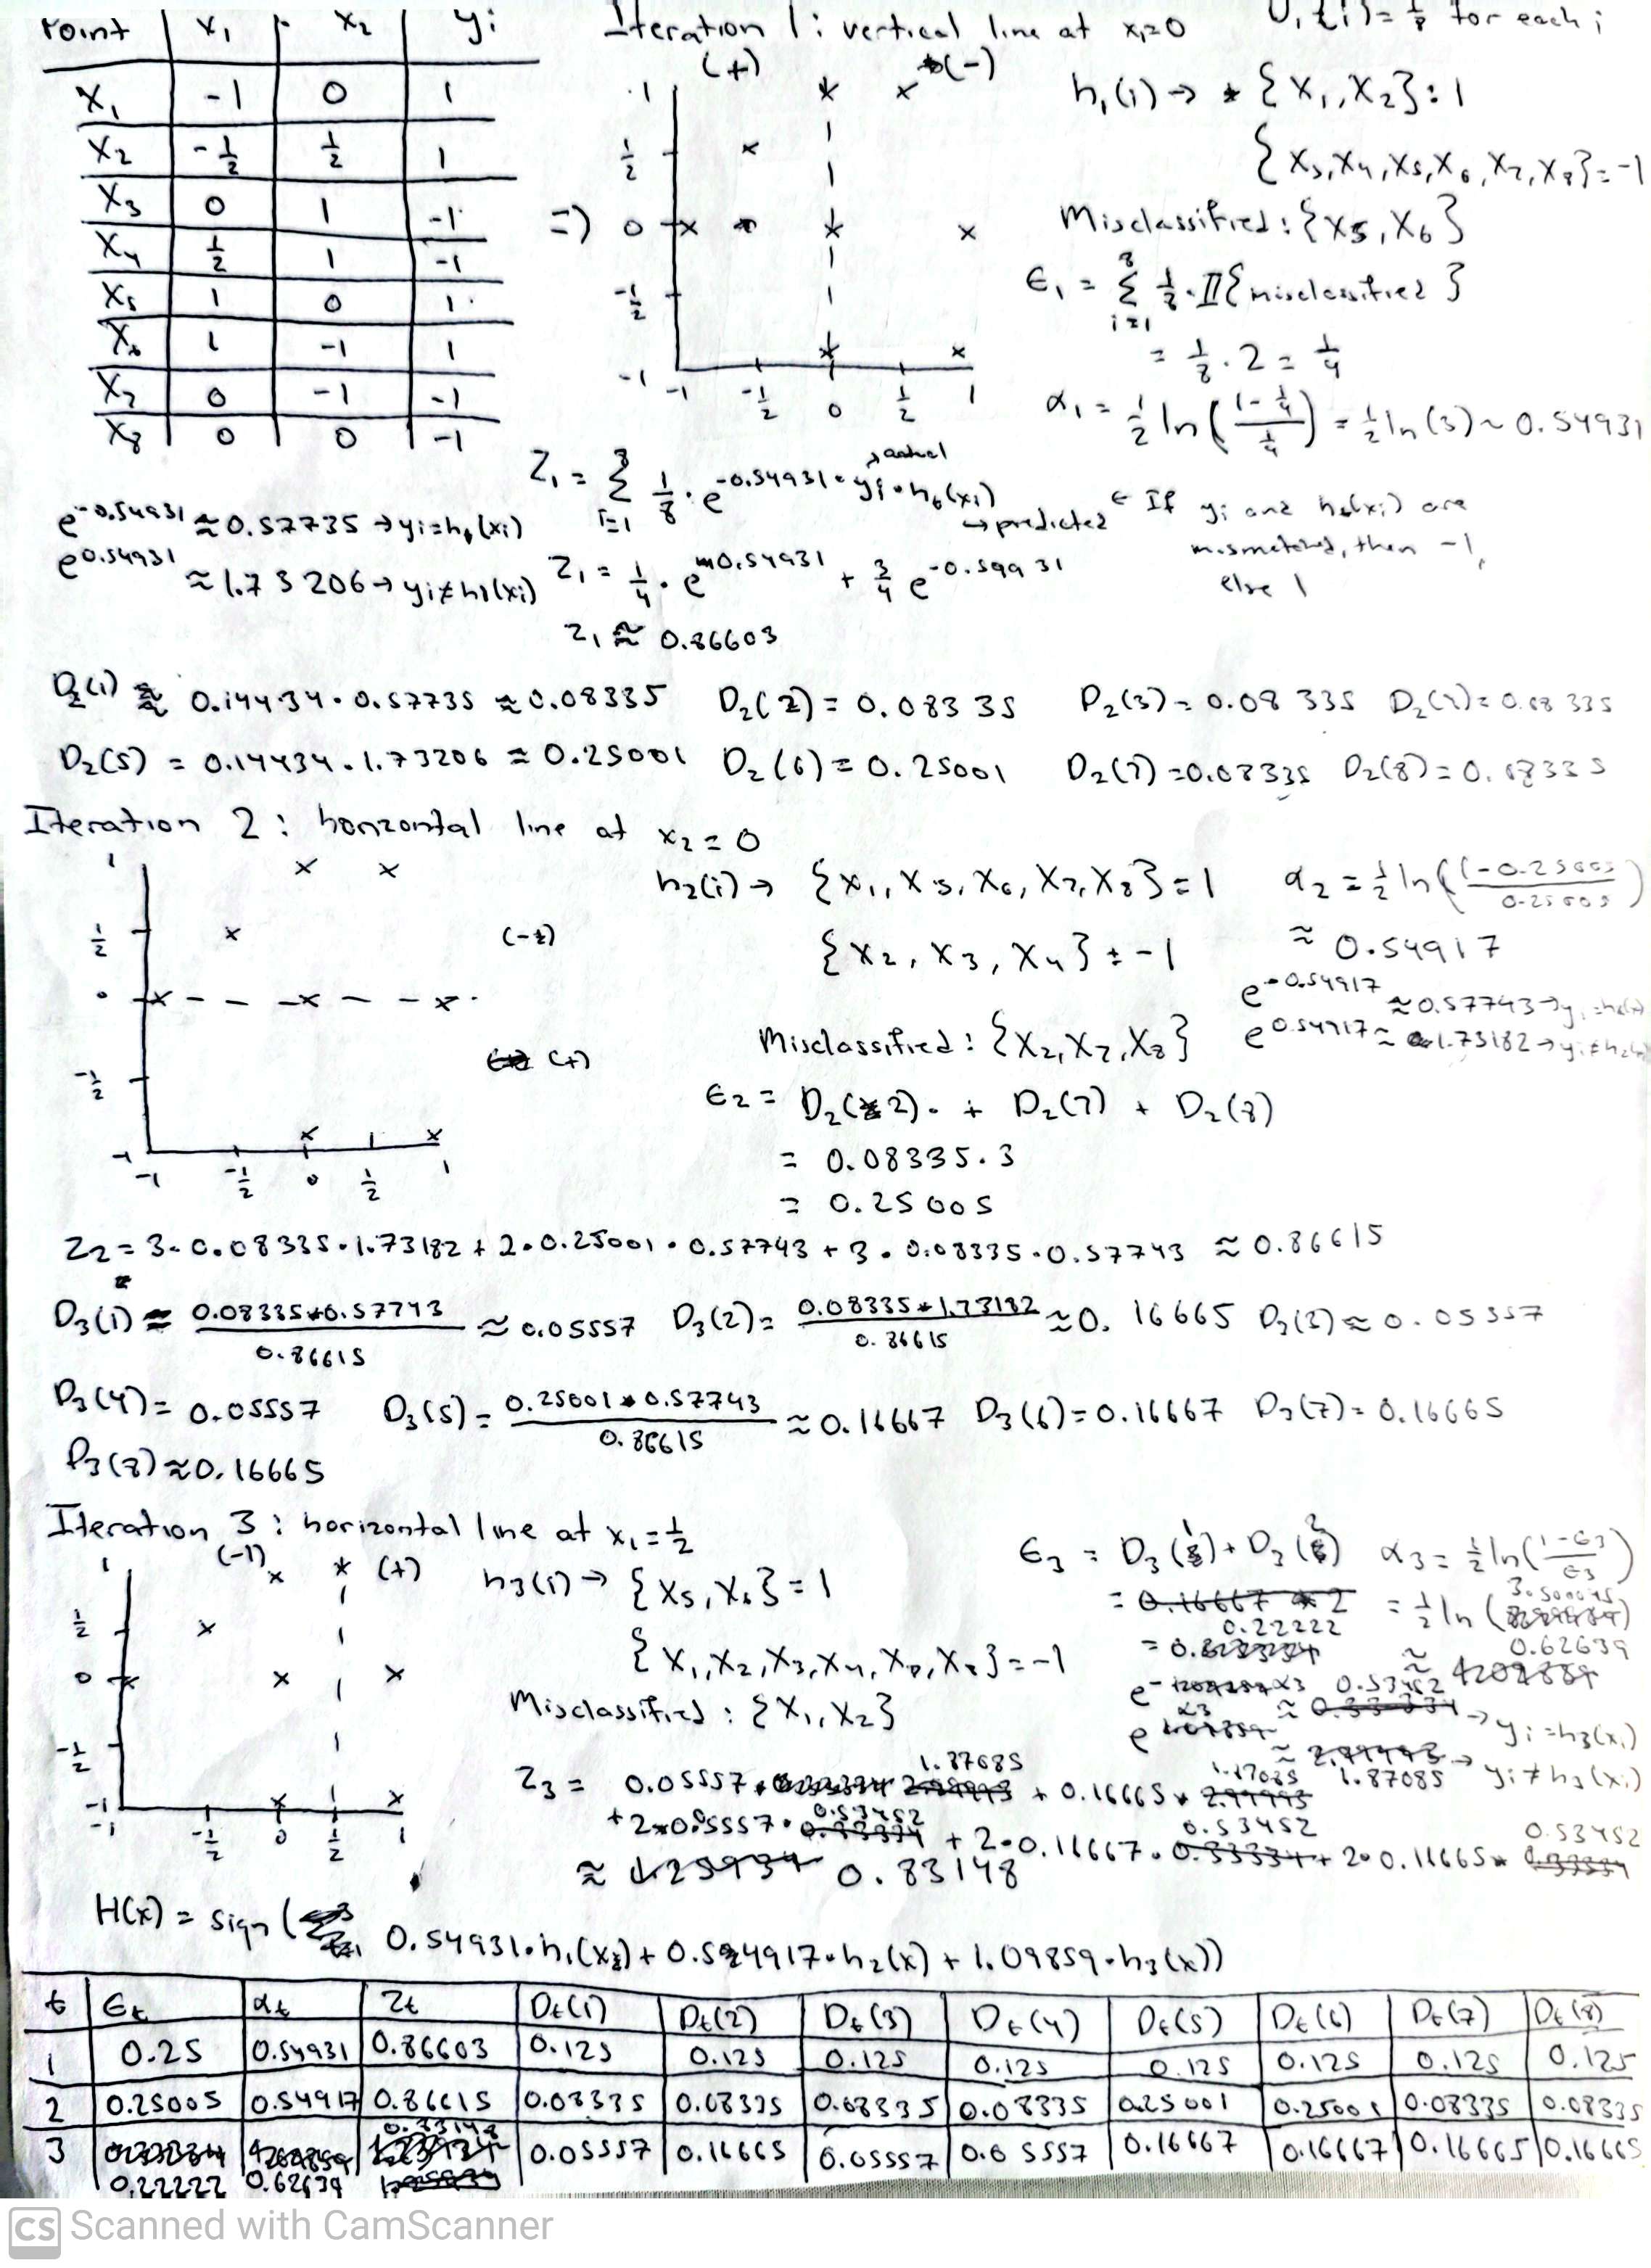 Point x₁ x₂ yᵢ
X₁ -1 0 1
X₂ -1/2 1/2 1
X₃ 0 1 -1
X₄ 1/2 1 -1
X₅ 1 0 1
X₆ 1 -1 1
X₇ 0 -1 -1
X₈ 0 0 -1
Iteration 1: vertical line at x₁=0
for each i
(+) (-)
1
1/2
=) 0
-1/2
-1
-1 -1/2 0 1/2 1
h₁(i) → {X₁, X₂}: 1
{X₃, X₄, X₅, X₆, X₇, X₈} = -1
Misclassified: {X₅, X₆}
ϵ₁ = Σ i=1 8 1/8 · 𝕀{misclassified}
= 1/8 · 2 = 1/4
α₁ = 1/2 ln((1-1/4)/(1/4)) = 1/2 ln(3) ~ 0.54931
Z₁ = Σ i=1 8 1/8 · e^(-0.54931 · yᵢ · h₁(xᵢ))
→ actual
→ predicted
← If yᵢ and h₁(xᵢ) are
mismatched, then -1,
else 1
e^(-0.54931) ≈ 0.57735 → yᵢ = h₁(xᵢ)
e^(0.54931) ≈ 1.73206 → yᵢ ≠ h₁(xᵢ)
Z₁ = 1/4 · e^(0.54931) + 3/4 e^(-0.54931)
Z₁ ≈ 0.86603
D₂(1) ≈ 0.14434 · 0.57735 ≈ 0.08335 D₂(2) = 0.08335 D₂(3) = 0.08335 D₂(4) = 0.08335
D₂(5) = 0.14434 · 1.73206 = 0.25001 D₂(6) = 0.25001 D₂(7) = 0.08335 D₂(8) = 0.08335
Iteration 2: horizontal line at x₂ = 0
1
1/2
0
-1/2
-1
-1 -1/2 0 1/2 1
(-)
(+)
h₂(i) → {X₁, X₅, X₆, X₇, X₈} = 1
{X₂, X₃, X₄} = -1
Misclassified: {X₂, X₇, X₈}
ϵ₂ = D₂(2) + D₂(7) + D₂(8)
= 0.08335 · 3
= 0.25005
α₂ = 1/2 ln((1-0.25005)/0.25005)
≈ 0.54917
e^(-0.54917) ≈ 0.57743 → yᵢ = h₂(xᵢ)
e^(0.54917) ≈ 1.73182 → yᵢ ≠ h₂(xᵢ)
Z₂ = 3 · 0.08335 · 1.73182 + 2 · 0.25001 · 0.57743 + 3 · 0.08335 · 0.57743 ≈ 0.86615
D₃(1) ≈ 0.08335*0.57743/0.86615 ≈ 0.05557 D₃(2) = 0.08335*1.73182/0.86615 ≈ 0.16665 D₃(3) ≈ 0.05557
D₃(4) = 0.05557 D₃(5) = 0.25001*0.57743/0.86615 ≈ 0.16667 D₃(6) = 0.16667 D₃(7) = 0.16665
D₃(8) ≈ 0.16665
Iteration 3: horizontal line at x₁ = 1/2
(-1) (+)
1
1/2
0
-1/2
-1
-1 -1/2 0 1/2 1
h₃(i) → {X₅, X₆} = 1
{X₁, X₂, X₃, X₄, X₇, X₈} = -1
Misclassified: {X₁, X₂}
ϵ₃ = D₃(1) + D₃(2)
= 0.16667 * 2
= 0.22222
α₃ = 1/2 ln((1-ϵ₃)/ϵ₃)
= 1/2 ln(3.500045)
≈ 0.62639
e^(-α₃) ≈ 0.53452 → yᵢ = h₃(xᵢ)
e^(α₃) ≈ 1.87085 → yᵢ ≠ h₃(xᵢ)
Z₃ = 0.05557 * 1.87085 + 0.16665 * 1.87085
+ 2*0.05557 · 0.53452 + 2 · 0.16667 · 0.53452 + 2 · 0.16665 * 0.53452
≈ 0.83148
H(x) = sign( 0.54931 · h₁(x) + 0.54917 · h₂(x) + 1.09859 · h₃(x))
t ϵₜ αₜ Zₜ Dₜ(1) Dₜ(2) Dₜ(3) Dₜ(4) Dₜ(5) Dₜ(6) Dₜ(7) Dₜ(8)
1 0.25 0.54931 0.86603 0.125 0.125 0.125 0.125 0.125 0.125 0.125 0.125
2 0.25005 0.54917 0.86615 0.08335 0.08335 0.08335 0.08335 0.25001 0.25001 0.08335 0.08335
3 0.22222 0.62639 0.83148 0.05557 0.16665 0.05557 0.05557 0.16667 0.16667 0.16665 0.16665
CS Scanned with CamScanner